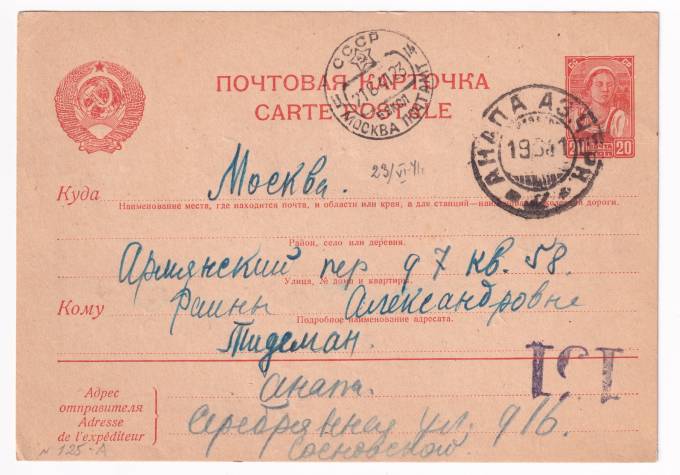 СССР
21.6.41 23
МОСКВА ПОЧТАМТ
ПОЧТОВАЯ КАРТОЧКА
CARTE POSTALE
20 20
АНАПА АЗ.ЧЕРН
19 6 41
23/VI-41
Куда Москва.
Наименование места, где находится почта, и области или края, а для станций—наименование железной дороги.
Район, село или деревня.
Армянский пер д 7 кв. 58.
Улица, № дома и квартиры.
Кому Раины Александровне
Подробное наименование адресата.
Тидеман.
151
Адрес
отправителя
Adresse
de l'expéditeur
Анапа.
Серебрянная ул. д 16.
Сосновской.
N 125-А